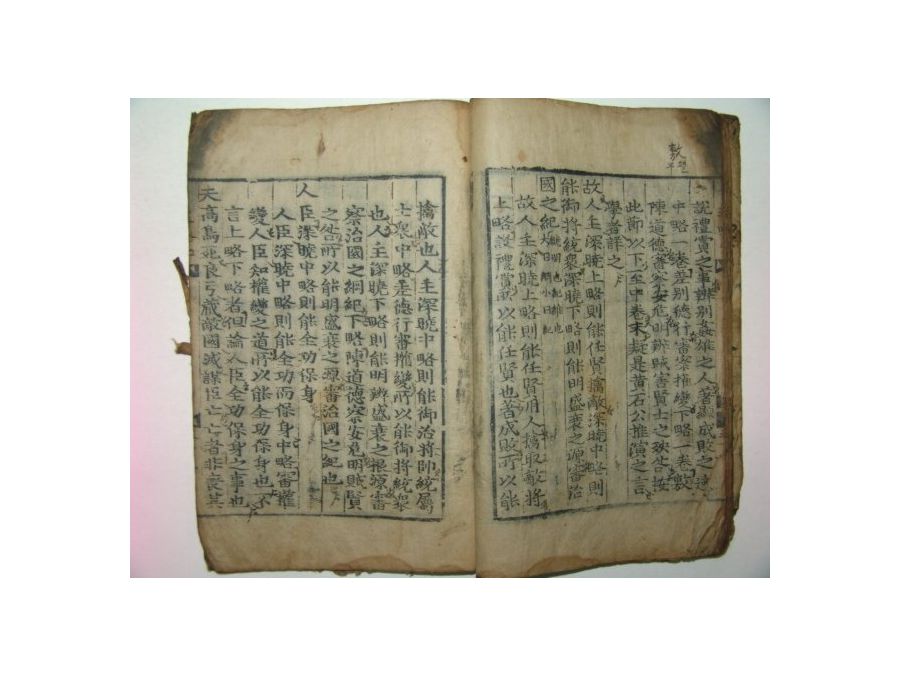 說禮賞之事辨別姦雄之人著顯成敗之迹
中略一卷差別德行審察權變下略一卷敷
陳道德審察安危明辨賊害賢士之殃咎按
此節以下至中卷末疑是黃石公推演之言
學者詳之
故人主深曉上略則能任賢擒敵深曉中略則
能御將統衆深曉下略則能明盛衰之源審治
國之紀 大曰綱小曰紀
故人主深曉上略則能任賢用人擒取敵將
上略設禮賞所以能任賢也著成敗所以能
擒敵也人主深曉中略則能御治將帥統屬
士衆中略差德行審權變所以能御將統衆
也人主深曉下略則能明辨盛衰之根源審
察治國之綱紀下略陳道德察安危明賊賢
之咎所以能明盛衰之源審治國之紀也
人臣深曉中略則能全功保身
人臣深曉中略則能全功而保身中略審權
變人臣知權變之道所以能全功保身也不
言上略下略者但論人臣全功保身之事也
夫高鳥死良弓藏敵國滅謀臣亡亡者非喪其